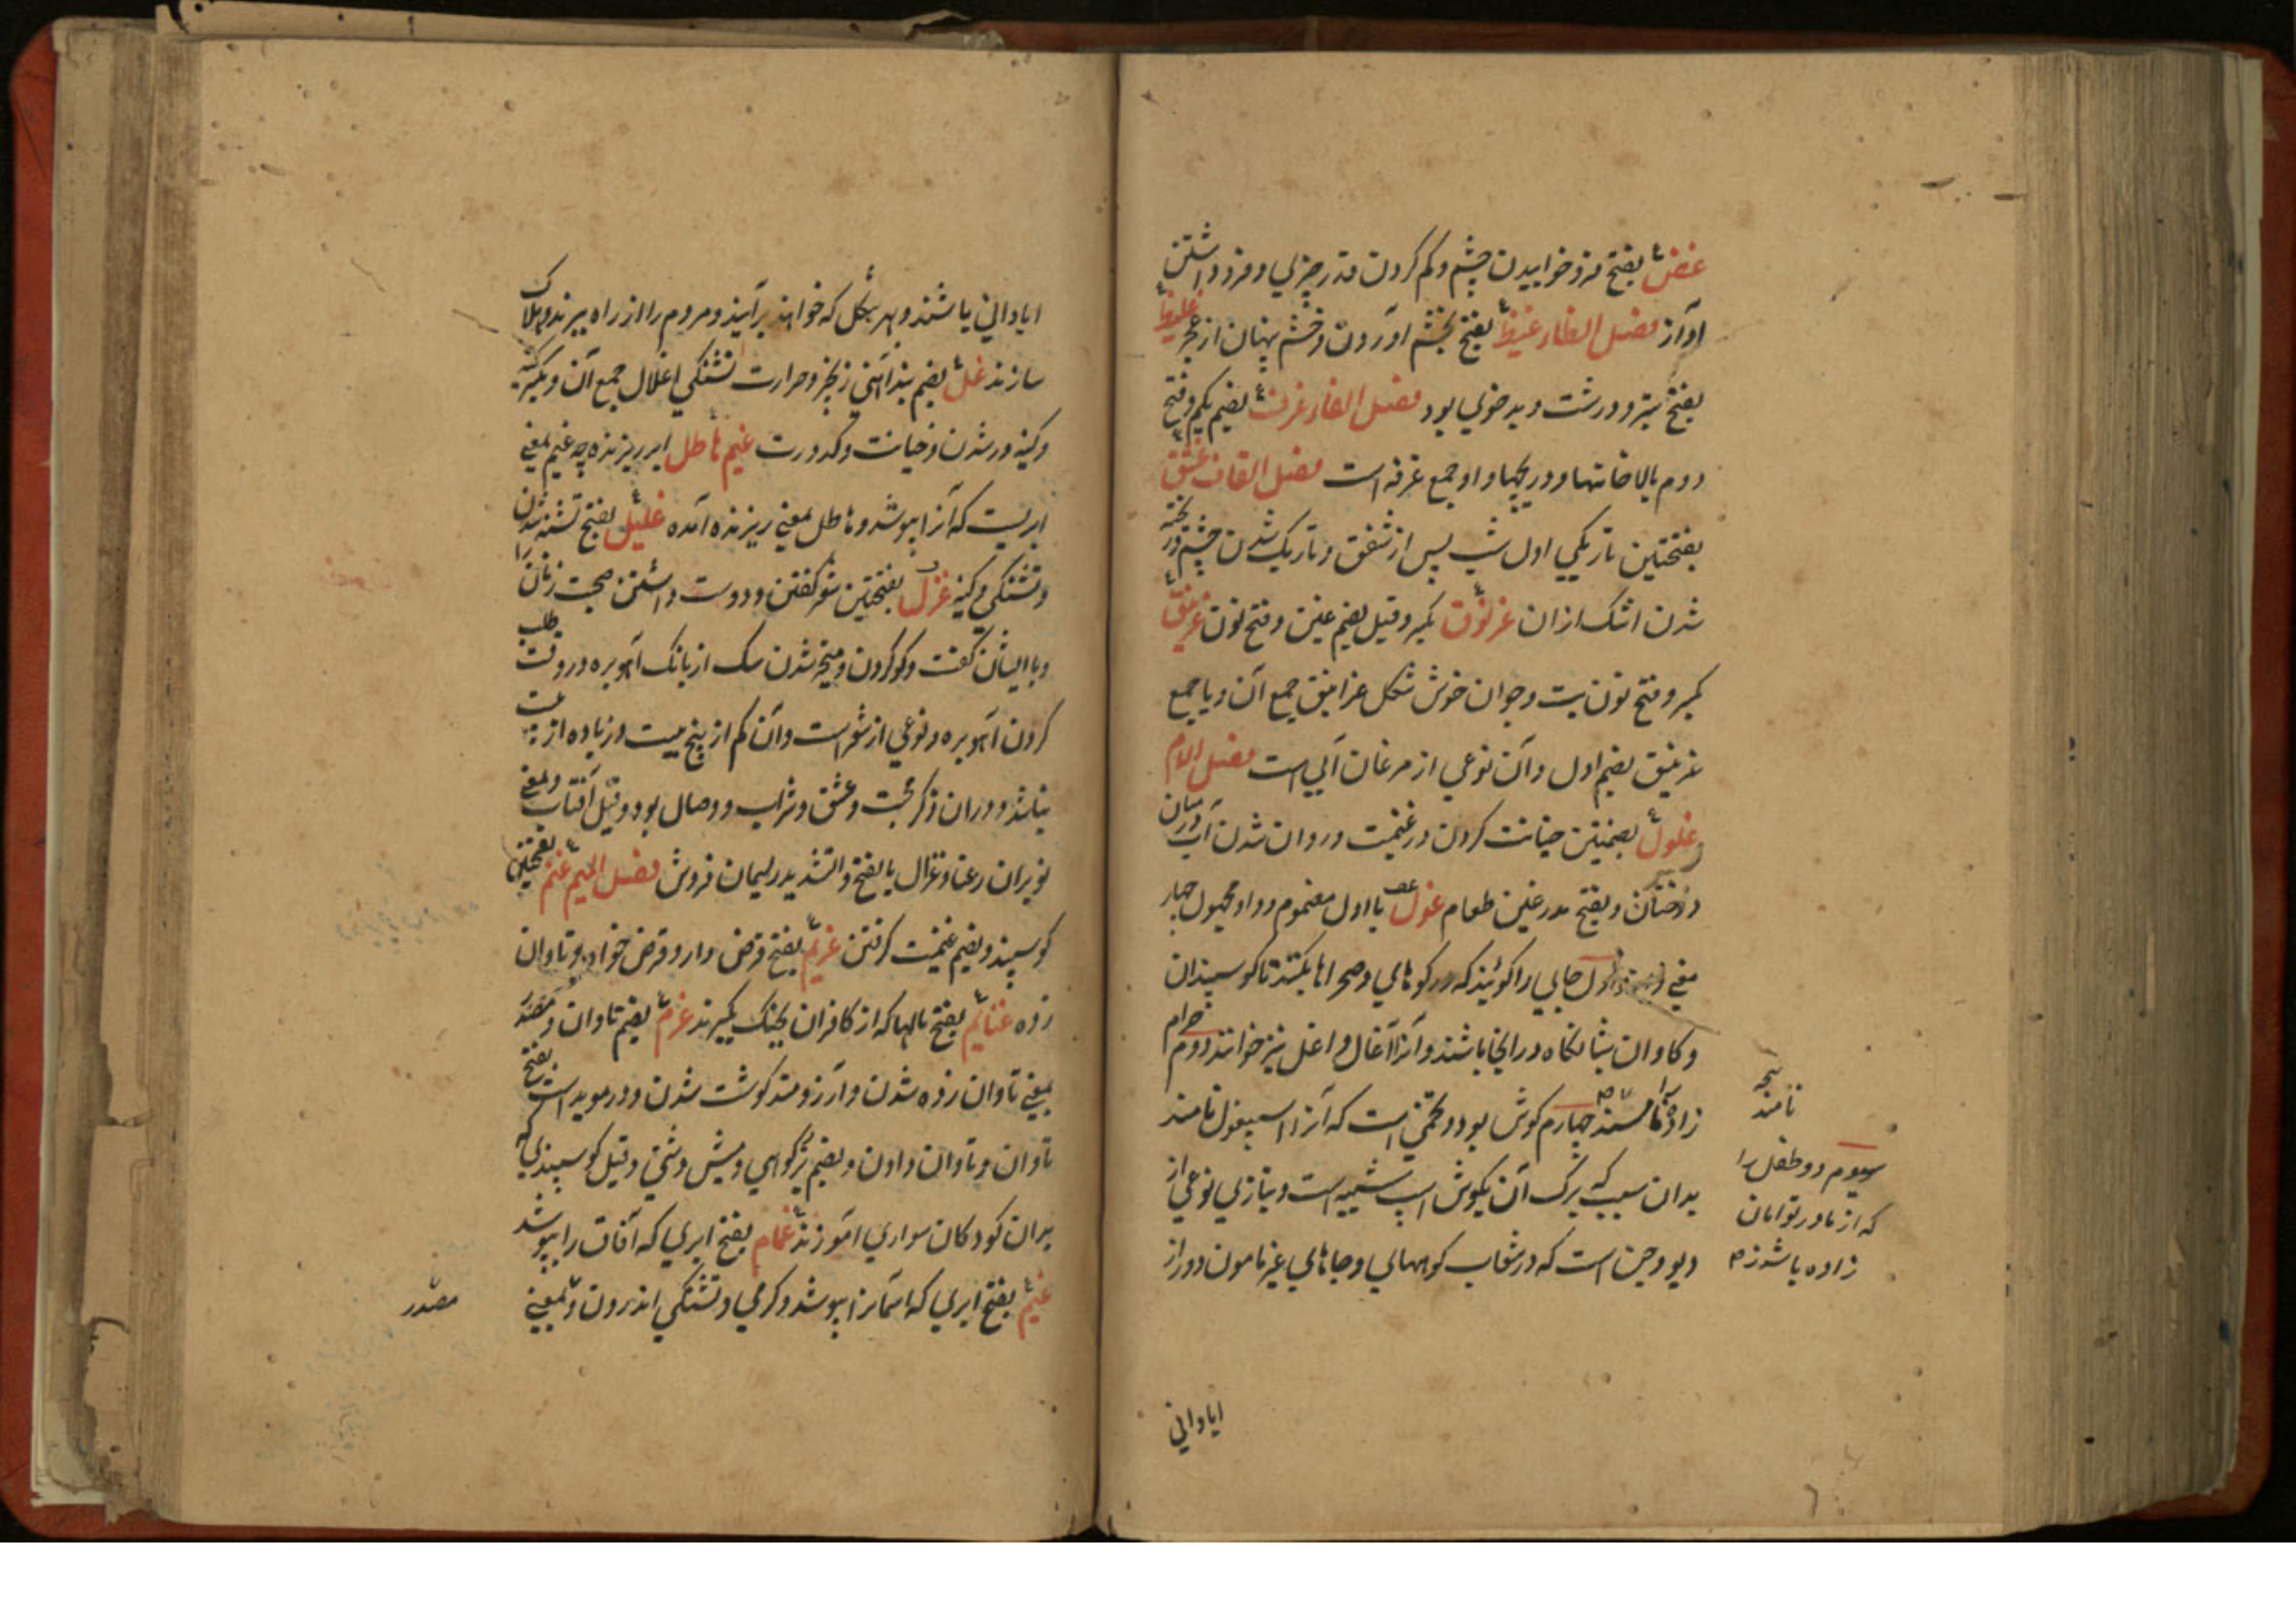 غض بفتح فرو خوابیدن چشم و کم کردن قدر چیزی و فرو داشتن
اواز فصل الظاء غیظ بفتح بخشم اوردن و خشم پنهان از عجز غلیظ
بفتح ستبر و درشت و بدخوی بود فصل الفاء غرف بضم یکم و فتح
دوم بالاخانها و دریچها و او جمع غرفه است فصل القاف غسق
بفتحتین تاریکی اول شب پس از شفق و تاریک شدن چشم و
شدن اشک ازان غرنوق بکسر و قیل بضم غین و فتح نون غرنیق
بکسر و فتح نون بت و جوان خوش شکل غرانیق جمع آن و یا جمع
غرنیق بضم اول و آن نوعی از مرغان آبی است فصل الام
غلول بضمتین خیانت کردن در غنیمت و روان شدن آب در میان
درختان و بفتح طعام غول با اول مضموم و واو مجهول چهار
معنی اول جایی را گویند که در کوهای و صحراها بکنند تا کوسپندان
و کاوان شبانکاه در انجا باشند و آنرا آغال و اغل نیز خوانند دوم حرام
زاده را چهارم کوش بود و تخمی است که آنرا اسپغول نامند
بدان سبب که برک آن بکوش اسب شبیه است و بتازی نوعی از
دیو و جن است که در شعاب کوههای و جاهای غیر مامون دور از
نامند
سیوم دو طفل را
که از مادر توامان
زاده باشند
ابادانی
ابادانی باشند و بهر شکل که خواهند برآیند و مردم را از راه ببرند و هلاک
سازند غل بضم بند آهنی زنجیر و حرارت تشنکی اغلال جمع آن و بکسر
و کینه ور شدن و خیانت و کدورت غیم هاطل ابر ریزنده چه غیم بمعنی
ابریست که آنرا بپوشد و هاطل بمعنی ریزنده آمده غلیل بفتح تشنه شدن
و تشنکی و کینه غزل بفتحتین شعر کفتن و دوست داشتن صحبت زنان را
و با ایشان کفت و کو کردن و متحیر شدن سک از بانک آهو بره در وقت طلب
کردن آهو بره و نوعی از شعر است و آن کم از پنج بیت و زیاده از
نباشد و دران ذکر محبت و عشق و شراب و وصال بود و قیل آفتاب و بمعنی
بوبران رعنا و غزال بالفتح و التشدید ریسمان فروش فصل المیم غنم بفتحتین
کوسپند و بضم غنیمت کرفتن غریم بفتح قرض دار و قرض خواه و تاوان
زده غنایم بفتح مالها که از کافران بجنک بکیرند غرم بضم تاوان و مصدر
بمعنی تاوان زده شدن و آرزومند کوشت شدن و در موید است بفتح
تاوان و تاوان دادن و بضم بز کوهی و میش دشتی و قیل کوسپندی که
بران کودکان سواری آموزند غمام بفتح ابری که آفاق را بپوشد
غیم بفتح ابری که اسمانرا بپوشد و کرمی و تشنکی اندرون و بمعنی
مصدر